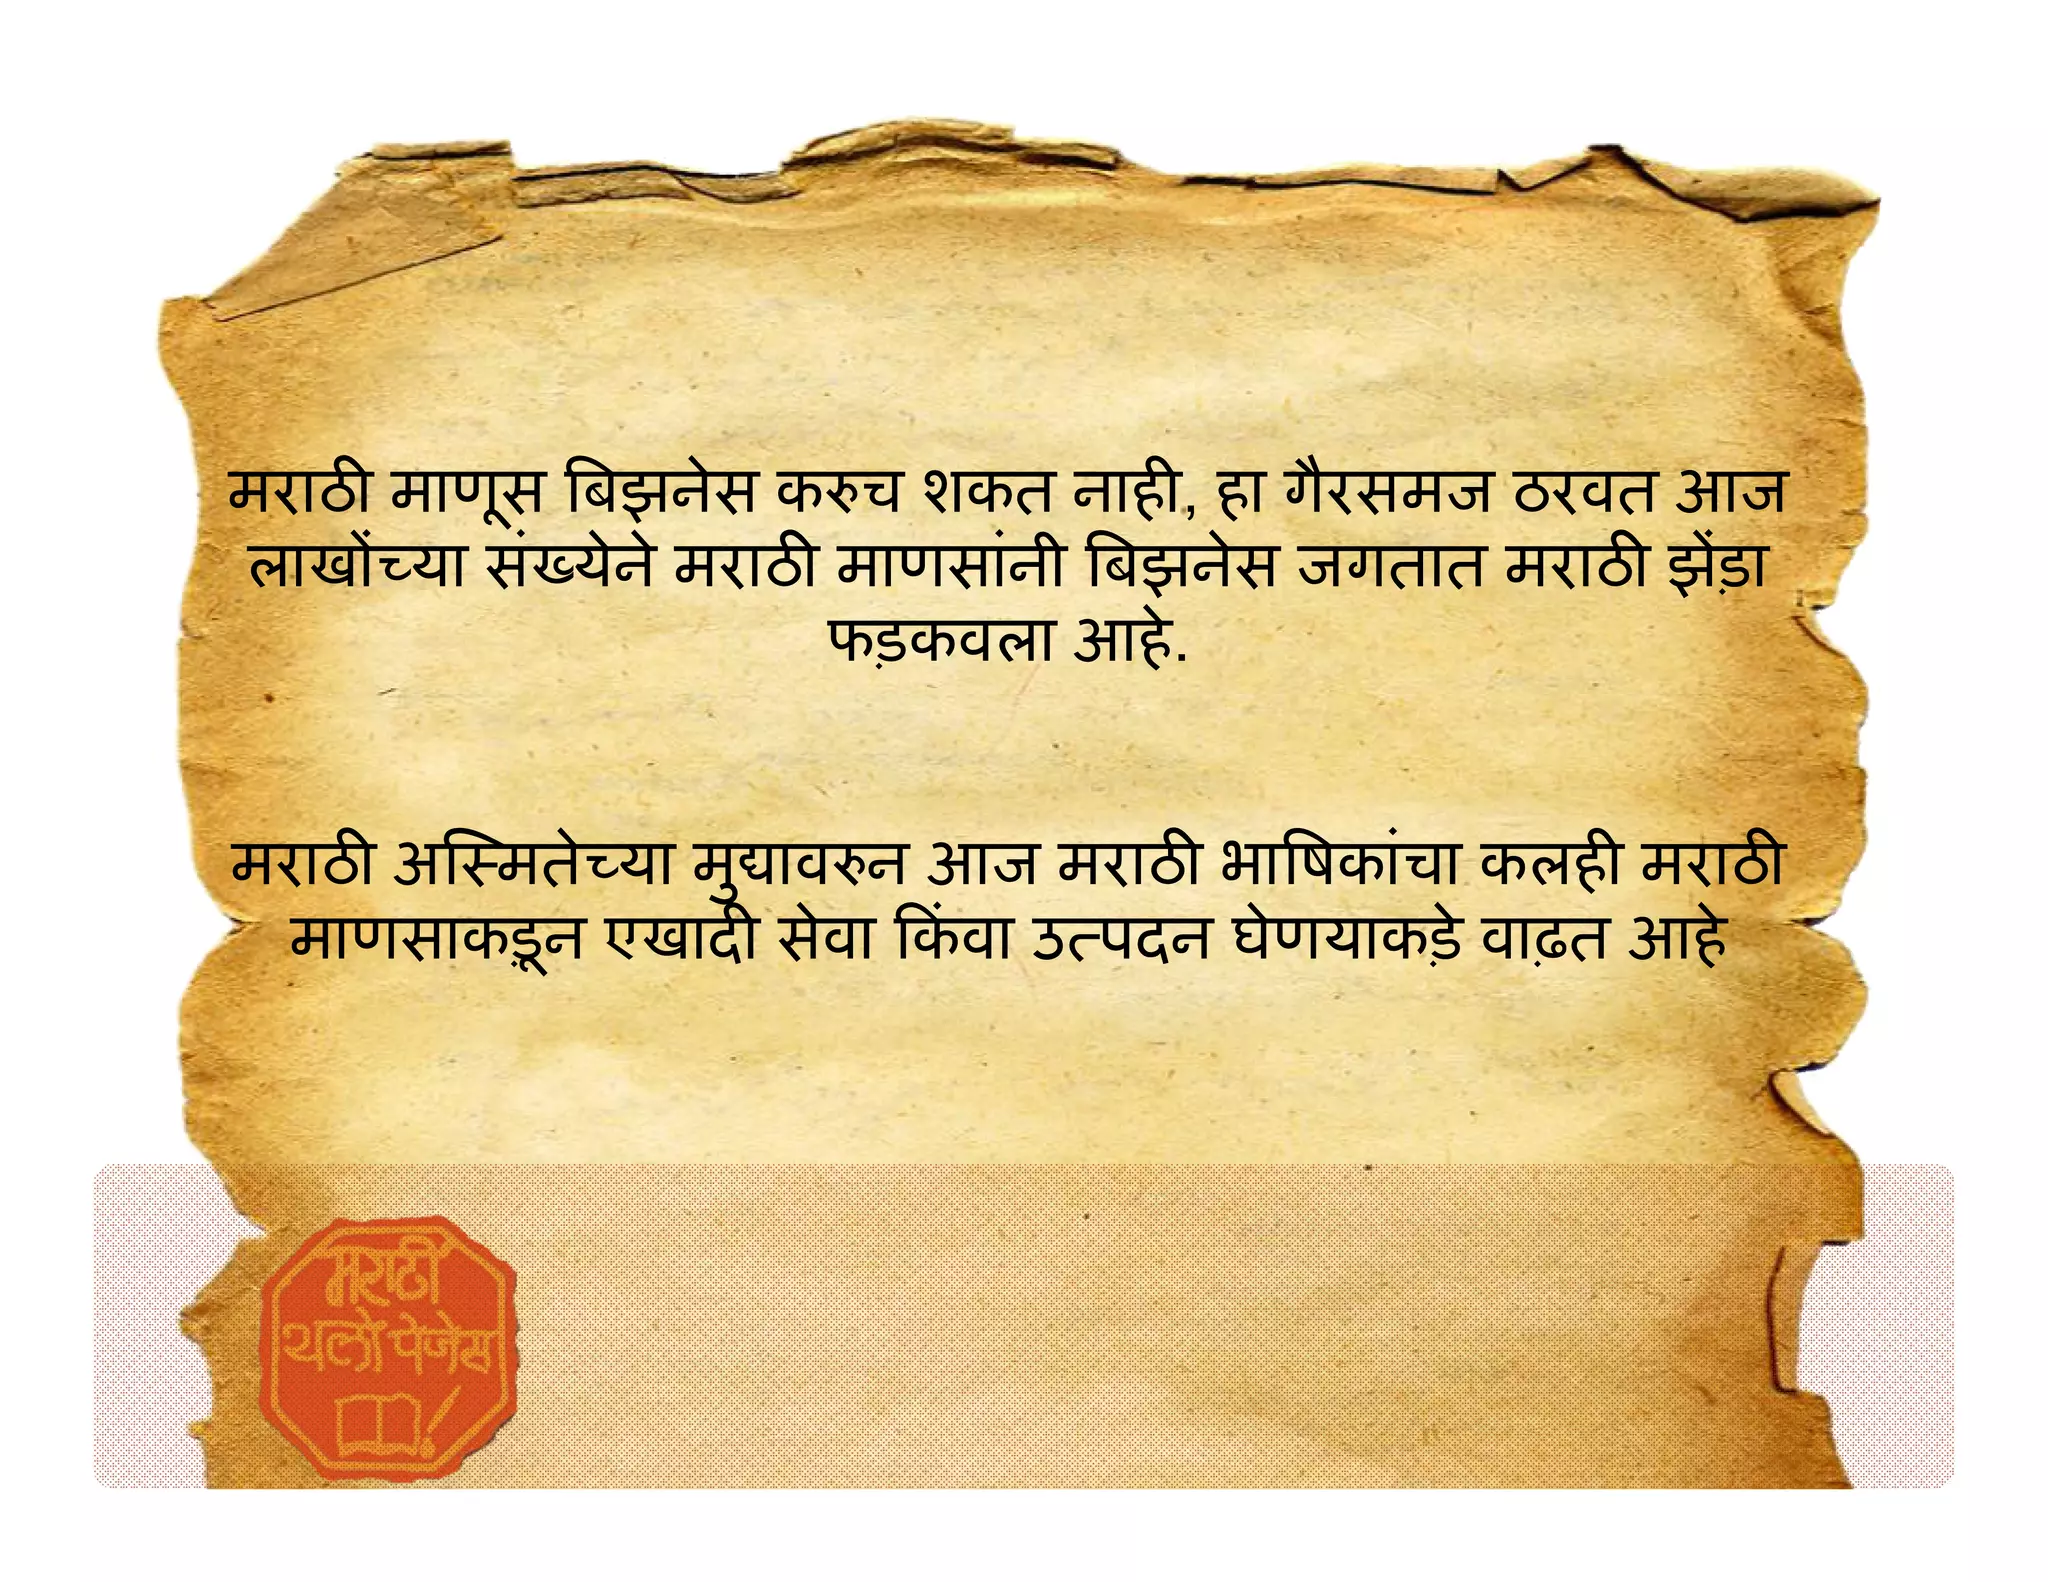 मराठी माणूस बिझनेस करुच शकत नाही, हा गैरसमज ठरवत आज
लाखोंच्या संख्येने मराठी माणसांनी बिझनेस जगतात मराठी झेंड़ा
फड़कवला आहे.
मराठी अस्मितेच्या मुद्यावरुन आज मराठी भाषिकांचा कलही मराठी
माणसाकड़ून एखादी सेवा किंवा उत्पदन घेणयाकड़े वाढ़त आहे
मराठी
यलो पेजेस